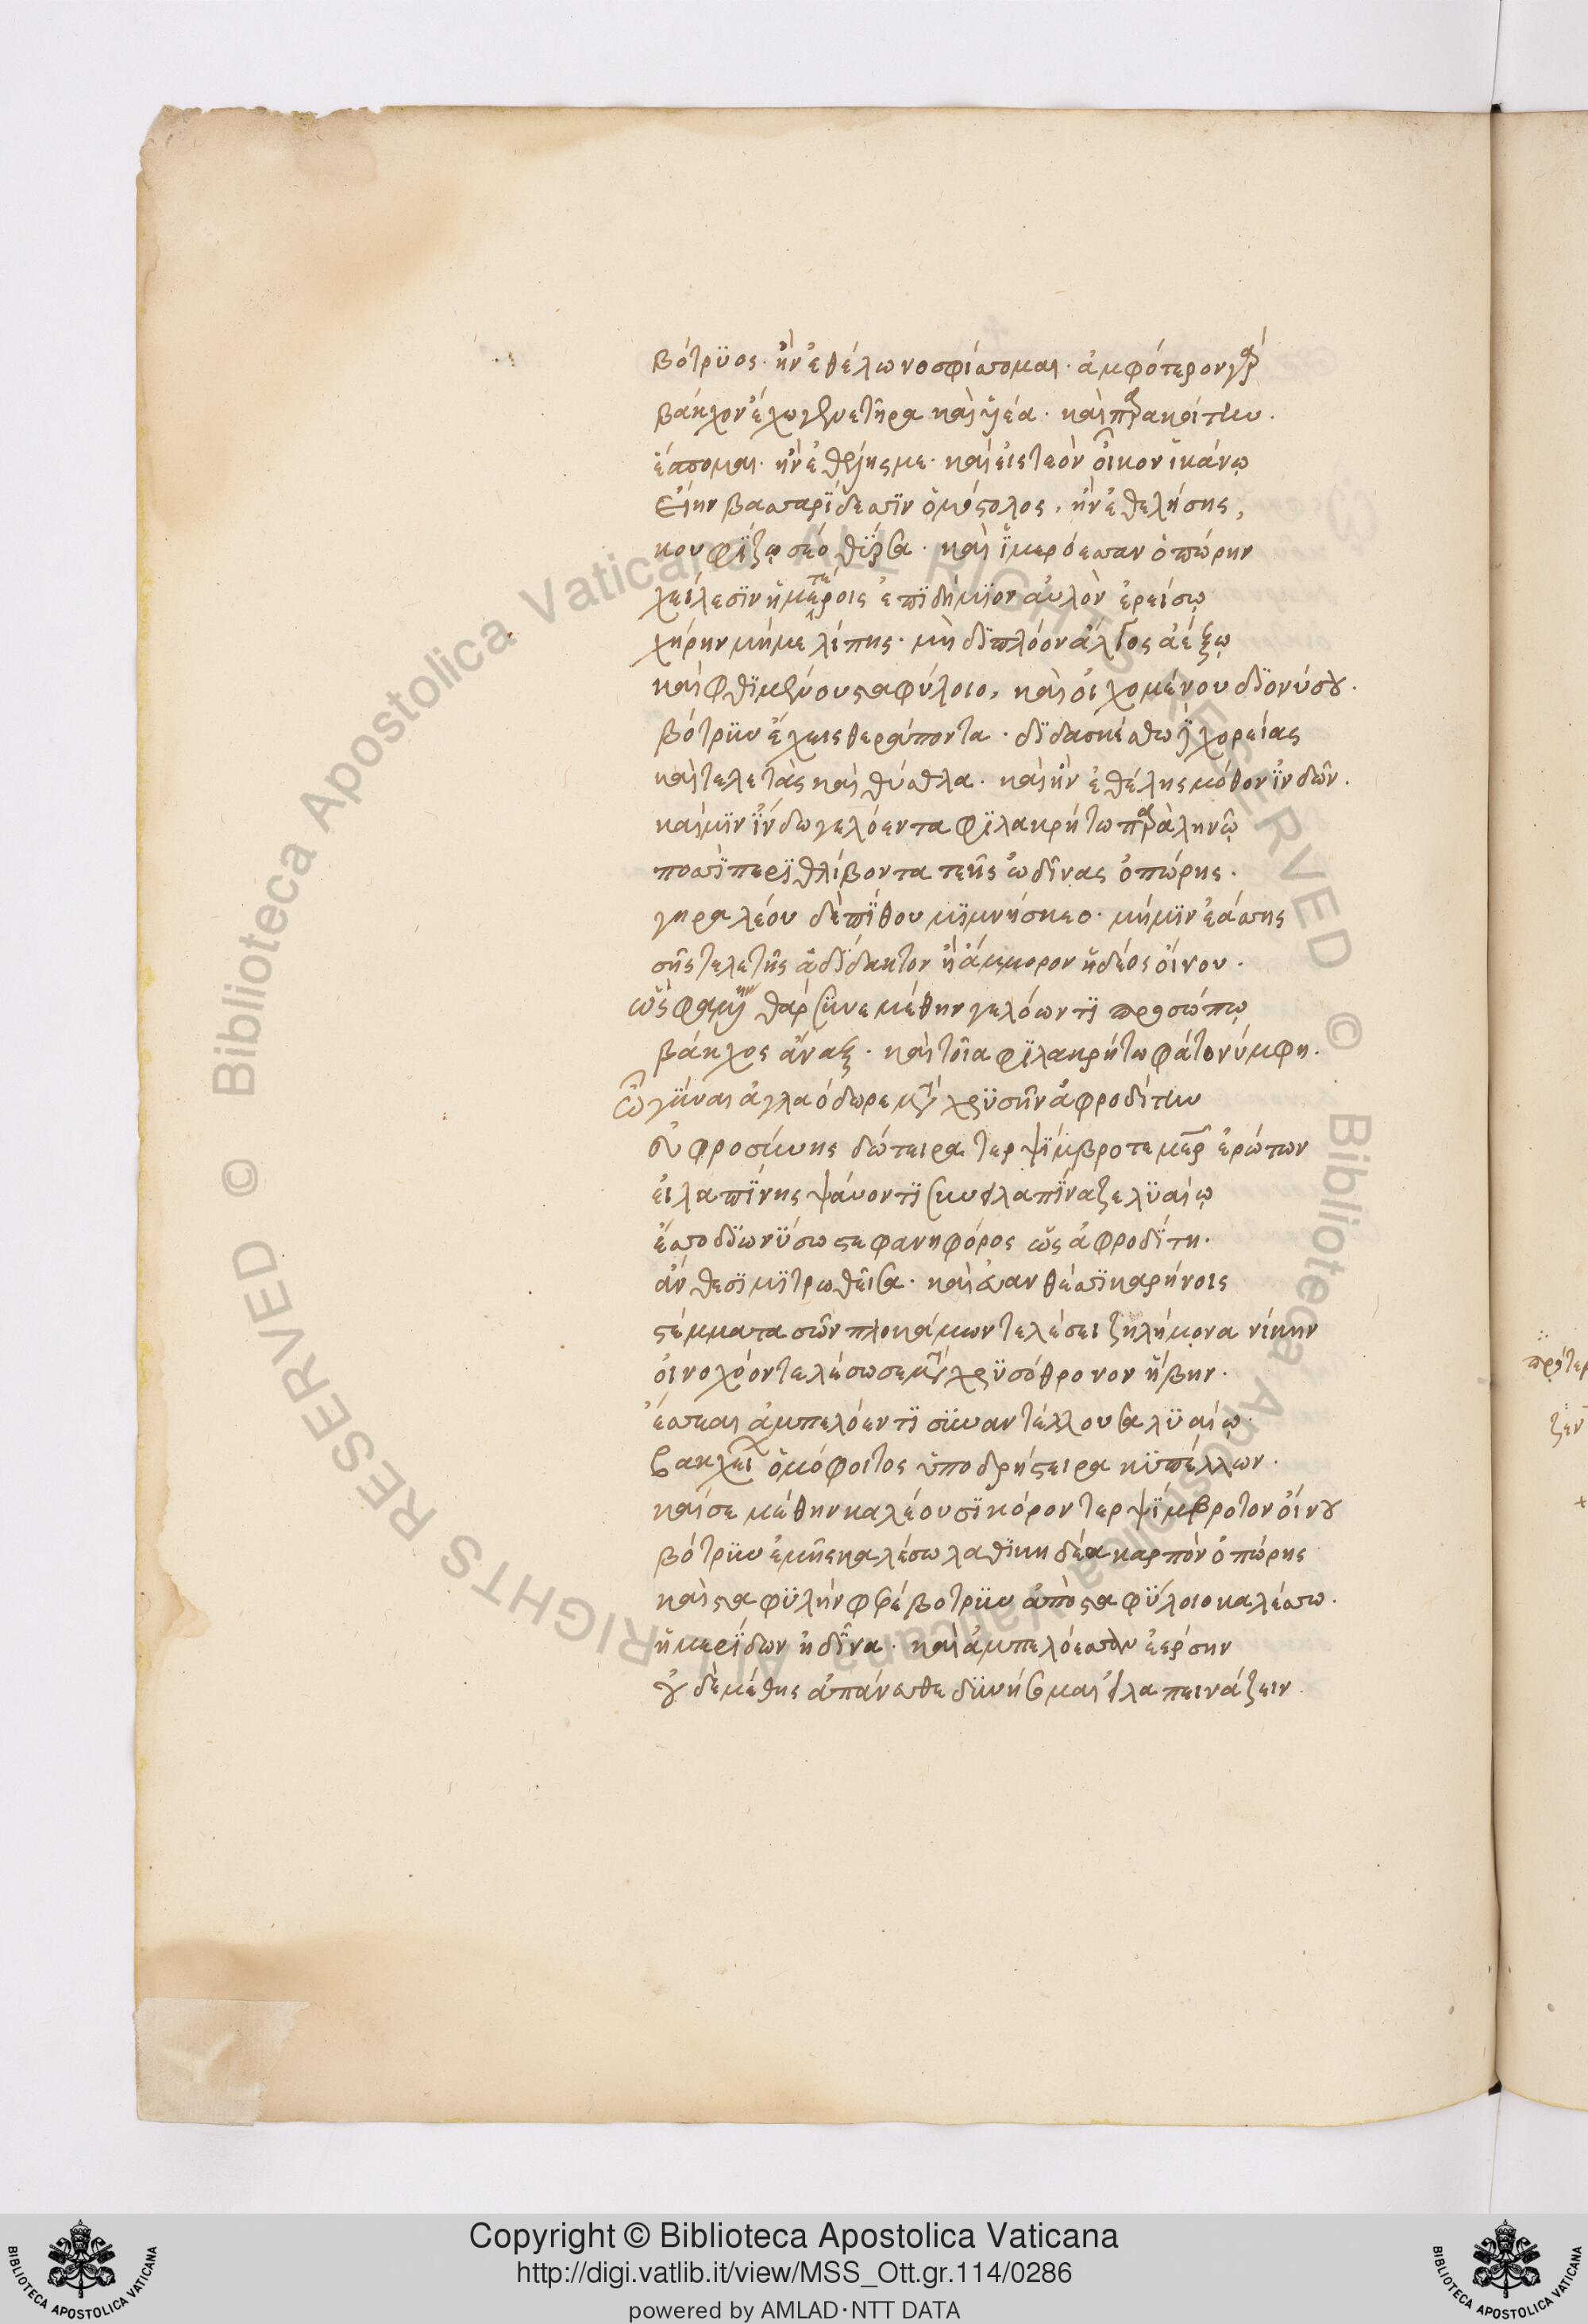 βότρϋος· ἢν ἐθέλω νοσφίσσομαι· ἀμφότερον γὰρ
βάκχον ἔχω γενετῆρα καὶ ὑιέα· καὶ παρακοίτην.
ἕσπομαι· ἢν ἐθέλης με· καὶ εἰς τεὸν οἶκον ἱκάνω
εἴην βασσαρίδεσσϊν ὁμόστολος, ἢν ἐθελήσης,
κουφΐζω σέο θύρσα· καὶ ἱμερόεσσαν ὀπώρην
χείλεσϊν ἡμετέροις ἐπϊδήμϊον αὐλὸν ἐρείσω
χήρην μή με λίπης· μὴ δϊπλόον ἄλγος ἀέξω
καὶ φθϊμένου σταφύλοιο, καὶ οἰχομένου δϊονύσου.
βότρυν ἔχεις θεράποντα· δϊδασκέσθω δὲ χορείας
καὶ τελετὰς καὶ θύσθλα· καὶ ἢν ἐθέλης μόθον ἰνδῶν.
καί μϊν ἴδω γελόεντα φϊλακρήτω παρὰ ληνῶ
ποσσὶ περϊθλίβοντα τεῆς ὠδῖνας ὀπώρης.
γηραλέου δὲ πΐθου μϊμνήσκεο· μή μϊν ἐάσης
σῆς τελετῆς ἀδΐδακτον ἢ ἄμμορον ἡδέος οἴνου.
ὣς φαμένην θάρσϋνε μέθην γελόωντϊ προσώπω
βάκχος ἄναξ· καὶ τοῖα φϊλακρήτω φάτο νύμφη.
ὦ γύναι ἀγλαόδωρε μετὰ χρϋσῆν ἀφροδίτην
εὐφροσύνης δώτειρα τερψΐμβροτε μῆτερ ἐρώτων
εἰλαπΐνης ψάυοντϊ συνειλαπΐναζε λϋαίω
ἔσσο δϊωνΰσω στεφανηφόρος ὡς ἀφροδΐτη.
ἄνθεσϊ μϊτρωθεῖσα· καὶ εὐανθέσσϊ καρήνοις
στέμματα σῶν πλοκάμων τελέσει ζηλήμονα νίκην
οἰνοχόον τελέσω σε μετὰ χρϋσόθρονον ἥβην.
ἔσσεαι ἀμπελόεντϊ συναντέλλουσα λϋαίω.
βακχείη ὁμόφοιτος ὑποδρήστειρα κϋπέλλων.
καί σε μέθην καλέουσϊ κόρον τερψΐμβροτον οἴνου
βότρυν ἐμῆς καλέσω λαθϊκηδέα καρπὸν ὀπώρης
καὶ σταφϋλὴν φερέβοτρυν ἀπὸ σταφΰλοιο καλέσσω.
ἡμερΐδων ἠδῖνα· καὶ ἀμπελόεσσαν ἐέρσην
οὐ δὲ μέθης ἀπάνευθε δϋνήσομαι εἰλαπεινάζειν.
Copyright © Biblioteca Apostolica Vaticana
http://digi.vatlib.it/view/MSS_Ott.gr.114/0286
powered by AMLAD·NTT DATA